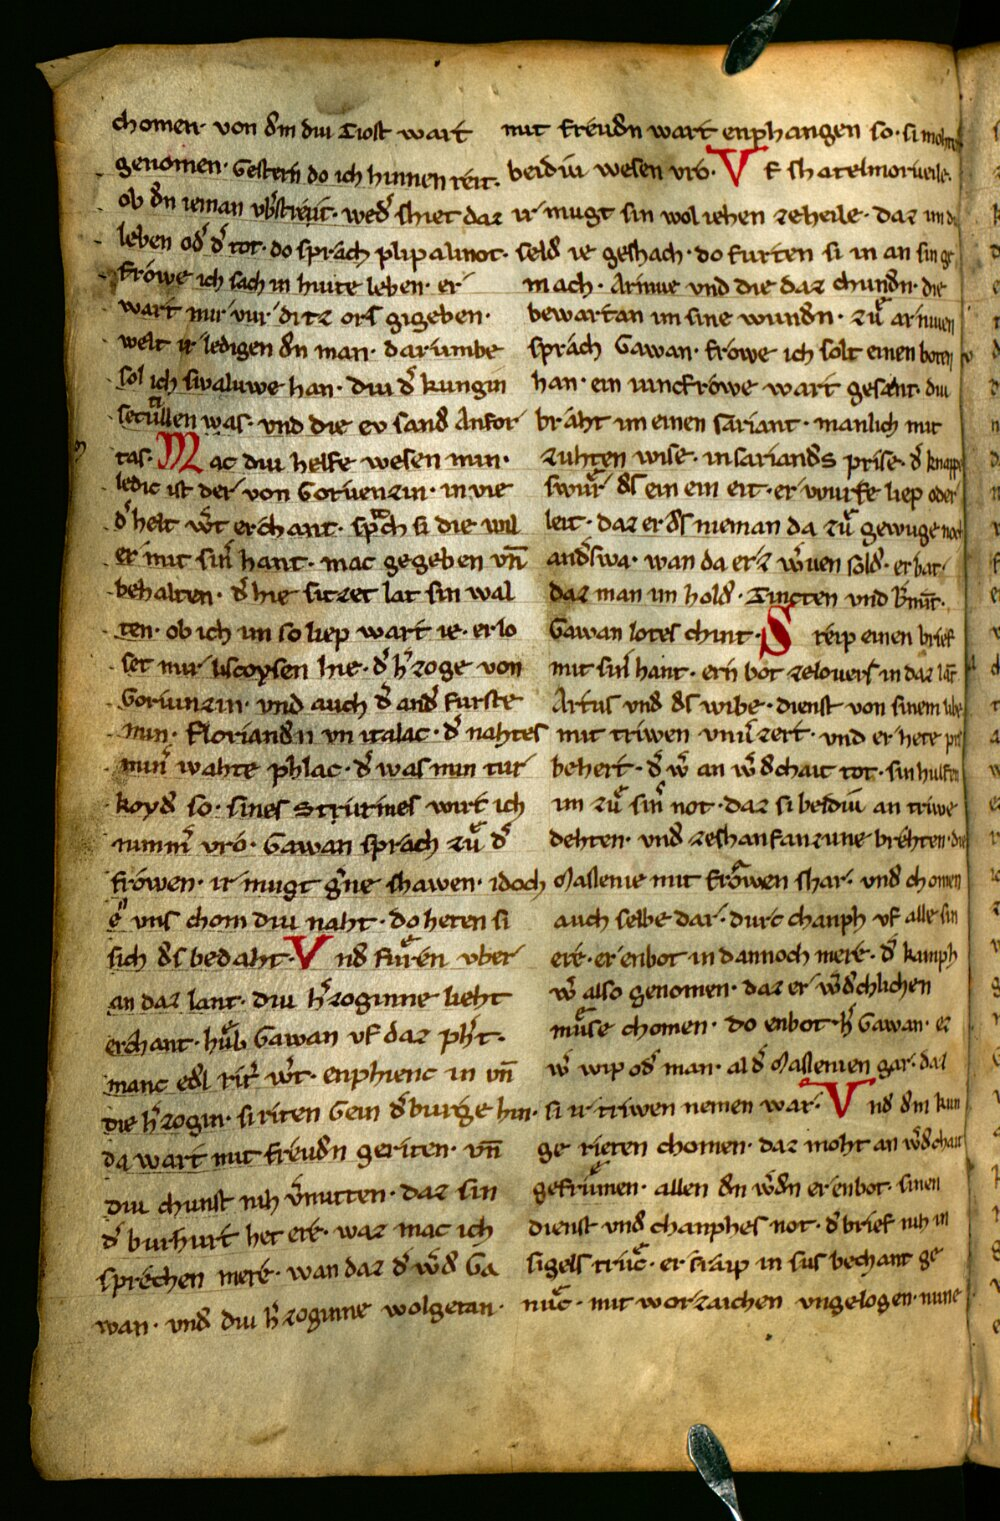 chomen· von dem diu Tiost wart
genomen· Gestern do ich hinnen reit·
ob dn ieman vbstreit· wed shiet daz
leben od d tot· do sprach plipalinot·
frowe ich sach in huite leben· er
wart mir vur ditz ors gigeben·
welt ir ledigen dn man· darumbe
sol ich swaluwe han· diu d kungin
secundillen was· vnd die ev sand Anfor
tas· Mac diu helfe wesen min·
ledic ist der von Goruenzin· in vie
d helt wt erchant· sprach si die wil
er mit sin hant· mac gegeben vn
behalten· d hie sitzet lat sin wal
ten· ob ich im so liep wart ie· er lo
set mir liscoysen hie· d hzoge von
Goriunzin· vnd auch d and furste
min· florianden vn italac· d nahtes
min wahte phlac· d was min tur
koyd so· sines Strurmes wirt ich
nimm vro· Gawan sprach zu d
frowen· ir mugt gne shawen· idoch
e vns chom diu naht· do heten si
sich ds bedaht· Vnd furen vber
an daz lant· diu hzoginne lieht
erchant· hub Gawan vf daz pht·
manc edl ritr wt· enphienc in vn
die hzogin· si riten Gein d burge hin·
da wart mit freudn geriten· vn
diu chunst nih vmitten· daz sin
d burhurt het ere· waz mac ich
sprechen mere· wan daz d wd Ga
wan· vnd diu hzoginne wolgetan·
mit freudn wart enphangen so· si mohten
beidiu wesen vro· Vf shatelmorueile·
ir mugt sin wol iehen zeheile· daz im di
seld ie geshach· do furten si in an sin ge
mach· Arniue vnd die daz chundn· die
bewartan im sine wundn· zu arniuen
sprach Gawan· frowe ich solt einen boten
han· ein iuncfrowe wart gesant· diu
braht im einen sariant· manlich mit
zuhten wise· in sariands prise· d knappe
swur ds ein ein eit· er vourfe liep oder
leit· daz er ds nieman da zu gewuge noch
andswa· wan da erz wuen sold· er bat·
daz man im hold· Tincten vnd Bmit·
Gawan lotes chint· Streip einen brief
mit sin hant· ern bot zelovers in daz lat
Artus vnd ds wibe· dienst von sinem libe
mit triwen vniuzert· vnd er hete pris
behert· d w an wdchait tot· sin hulfen
im zu sin not· daz si beidiu an triwe
dehten· vnd zeshanfanzune brehten· die
Massenie mit frowen shar· vnd chomen
auch selbe dar· durc chanph vf alle sin
ere· er enbot in dannoch mere· d kamph
w also genomen· daz er wdchlichen
muse chomen· do enbot· h Gawan· ez
w wip od man· al d Massenien gar· daz
si ir triwen nemen war· Vnd dm kun
ge rieten chomen· daz moht an wdchait
gefrumen· allen dn wdn er enbot· sinen
dienst vnd chanphes not· d brief nih in
sigels truc· er sraip in sus bechant ge
nuc· mit worzaichen vngelogen· nune